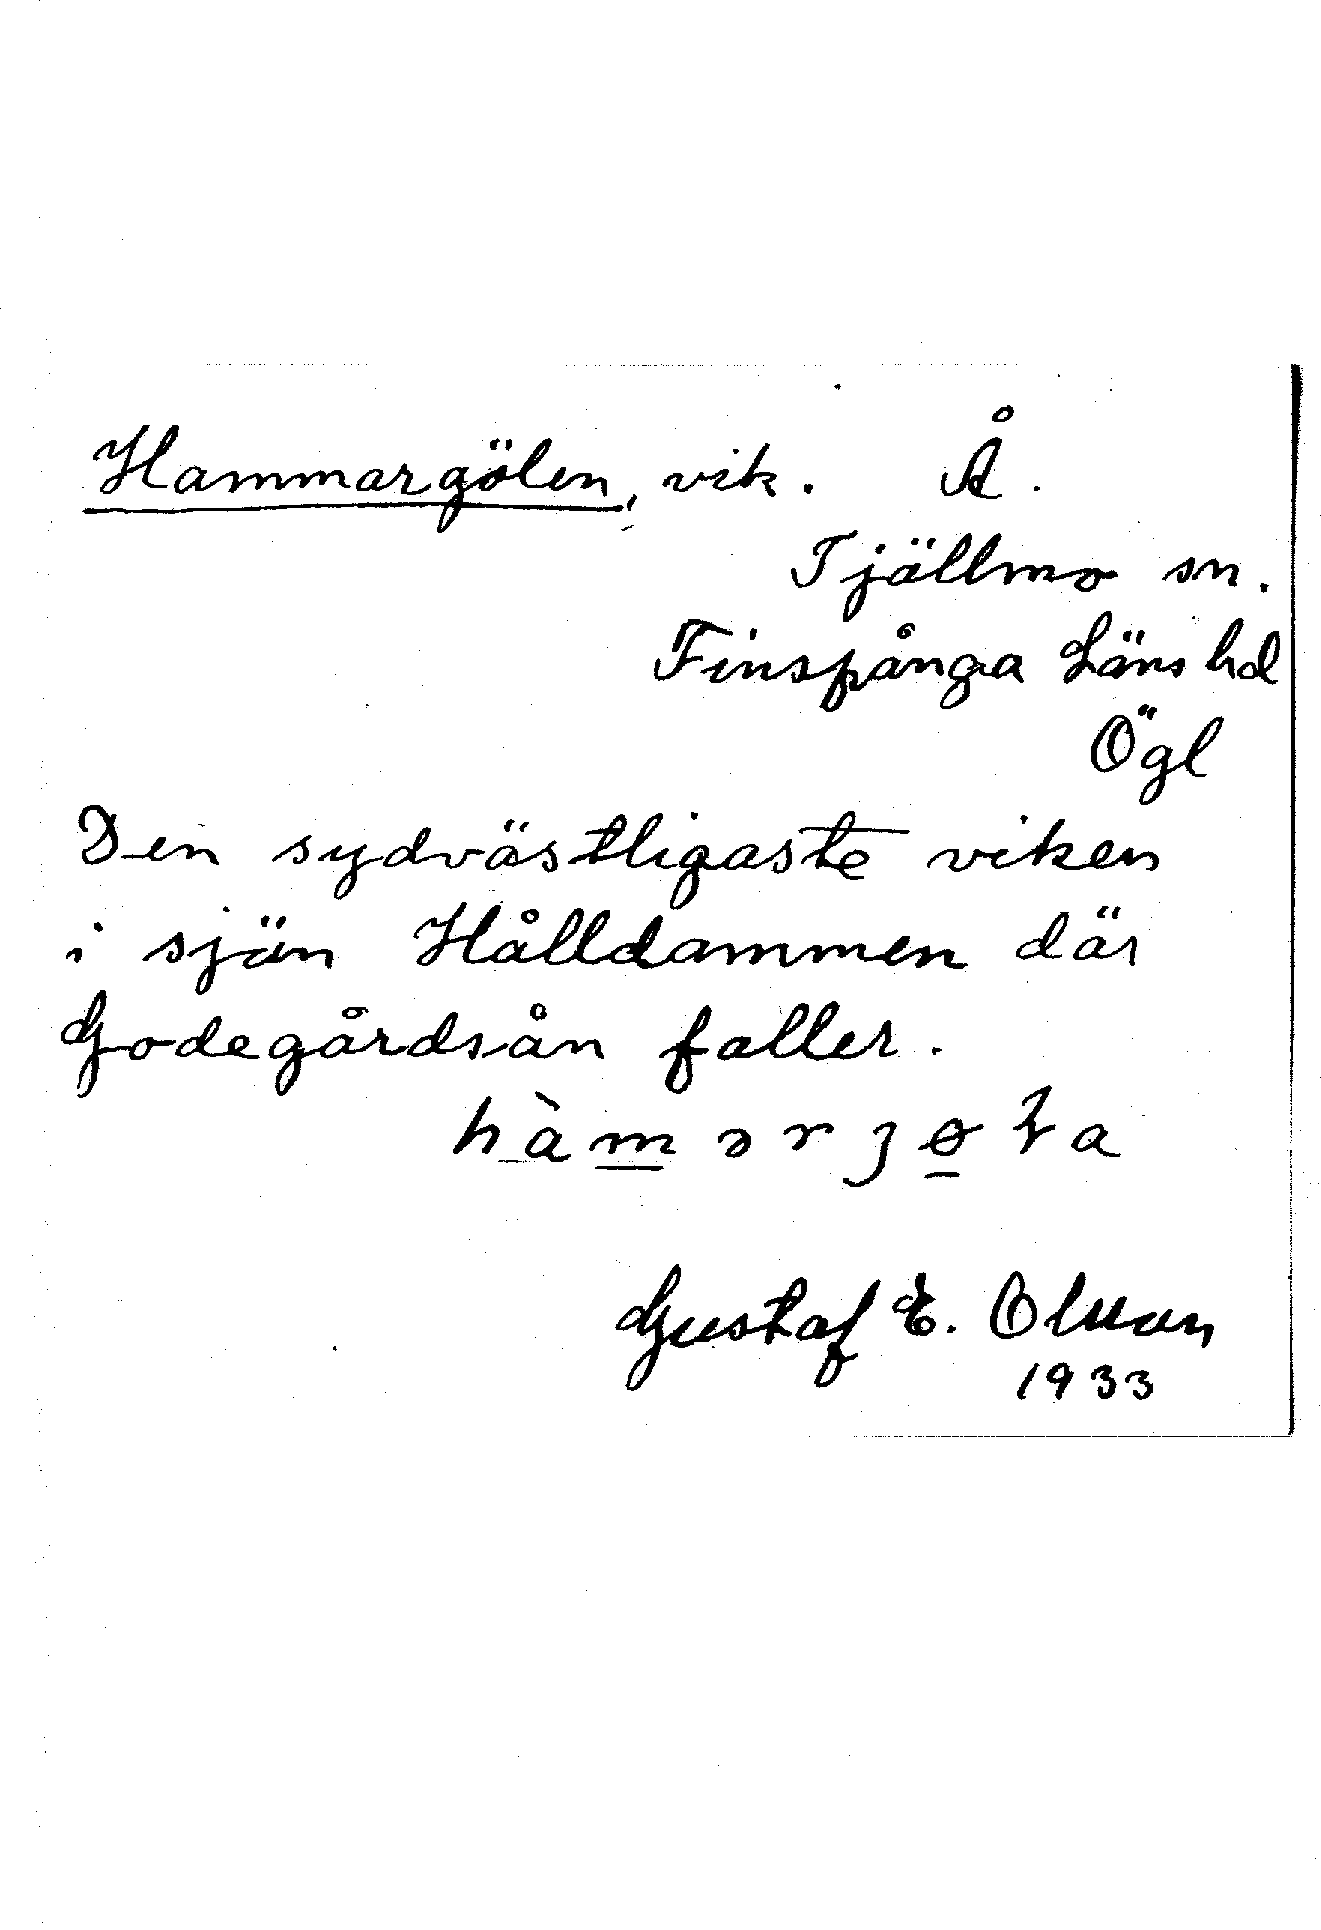 Hammargölen, vik. Å.
Tjällmo sn.
Finspånga Läns hd
Ögl
Den sydvästligaste viken
i sjön Hålldammen där
Godegårdsån faller.
hàmərȷøɫa
Gustaf E. Olsson
1933